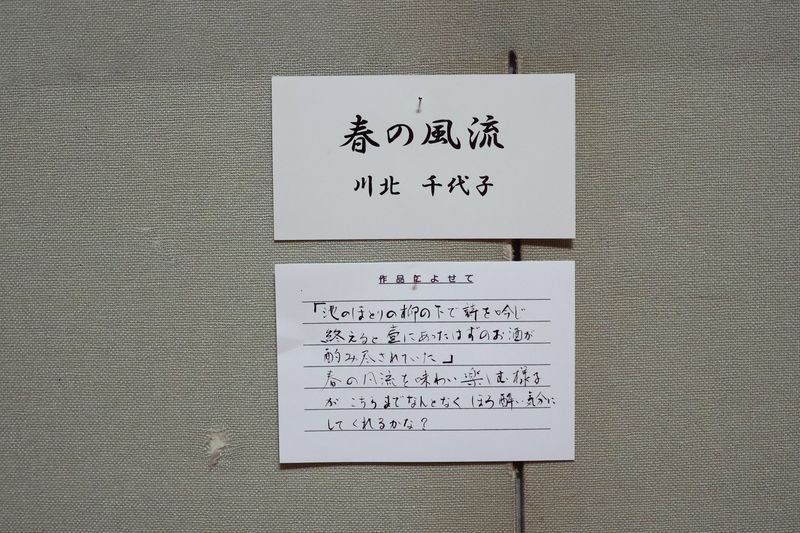 春の風流
川北 千代子
作品によせて
「池のほとりの柳の下で詩を吟じ
終えると壷にあったはずのお酒が
酌み尽されていた」
春の風流を味わい楽しむ様子
が こちらまでなんとなく ほろ酔い気分に
してくれるかな？